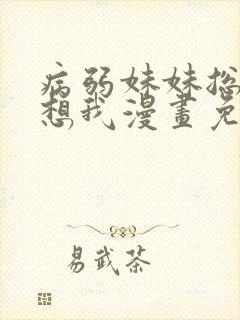 病弱妹妹总
想我漫畫免
易武茶